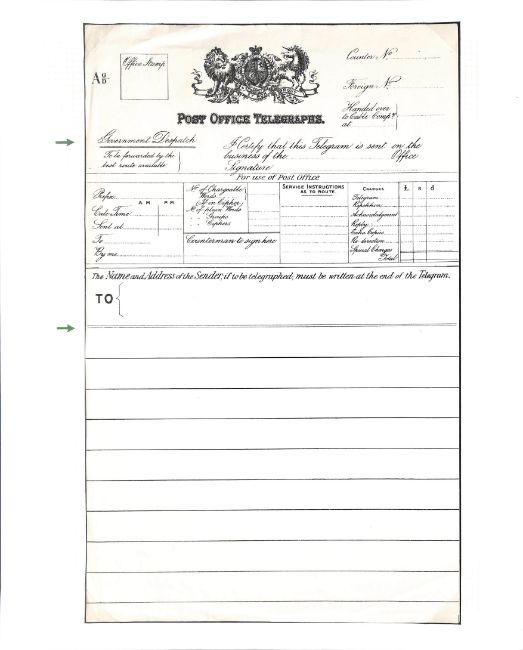 Office Stamp
A9/D
Counter No
Foreign No
Handed over
to Cable Compy
at
POST OFFICE TELEGRAPHS.
Government Despatch
To be forwarded by the
best route available
I Certify that this Telegram is sent on the
business of the Office
Signature
For use of Post Office
Prefix
A.M. P.M.
Code Time
Sent at
To
By me
No of Chargeable
Words
No of plain Words
" Groups
" Ciphers
Counterman to sign here
SERVICE INSTRUCTIONS
AS TO ROUTE
CHARGES
£ s d
Telegram
Repetition
Acknowledgment
Reply
Extra Copies
Re-direction
Special Charges
Total
The Name and Address of the Sender, if to be telegraphed, must be written at the end of the Telegram.
TO